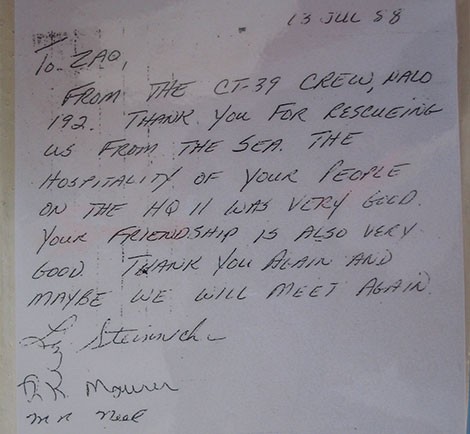 13 JUL 88
To ZAO,
FROM THE CT-39 CREW, NALO
192. THANK YOU FOR RESCUEING
US FROM THE SEA. THE
HOSPITALITY OF YOUR PEOPLE
ON THE HQ 11 WAS VERY GOOD.
YOUR FRIENDSHIP IS ALSO VERY
GOOD. THANK YOU AGAIN AND
MAYBE WE WILL MEET AGAIN.
K Maurer
M R Neal